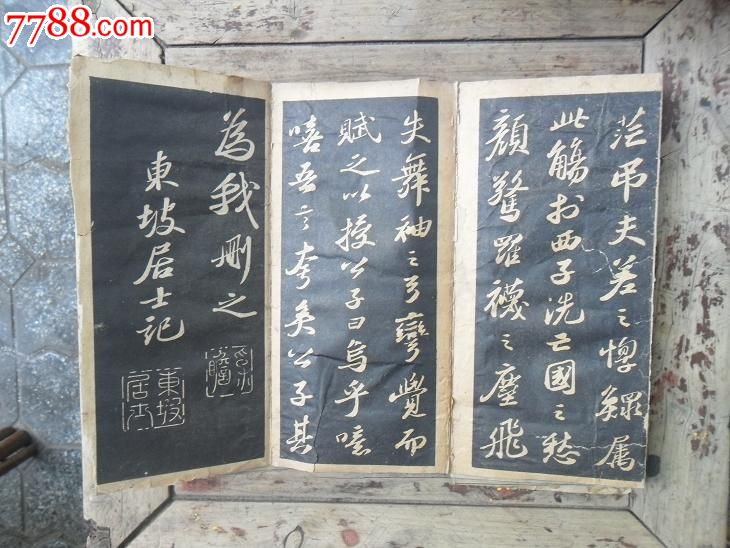 7788.com
茫吊夫差之惸鰥属
此觴於西子洗亡國之愁
顏驚羅襪之塵飛
失舞袖之弓彎覺而
賦之以授公子曰烏乎噫
嘻吾言夸矣公子其
為我刪之
東坡居士記
東坡居士